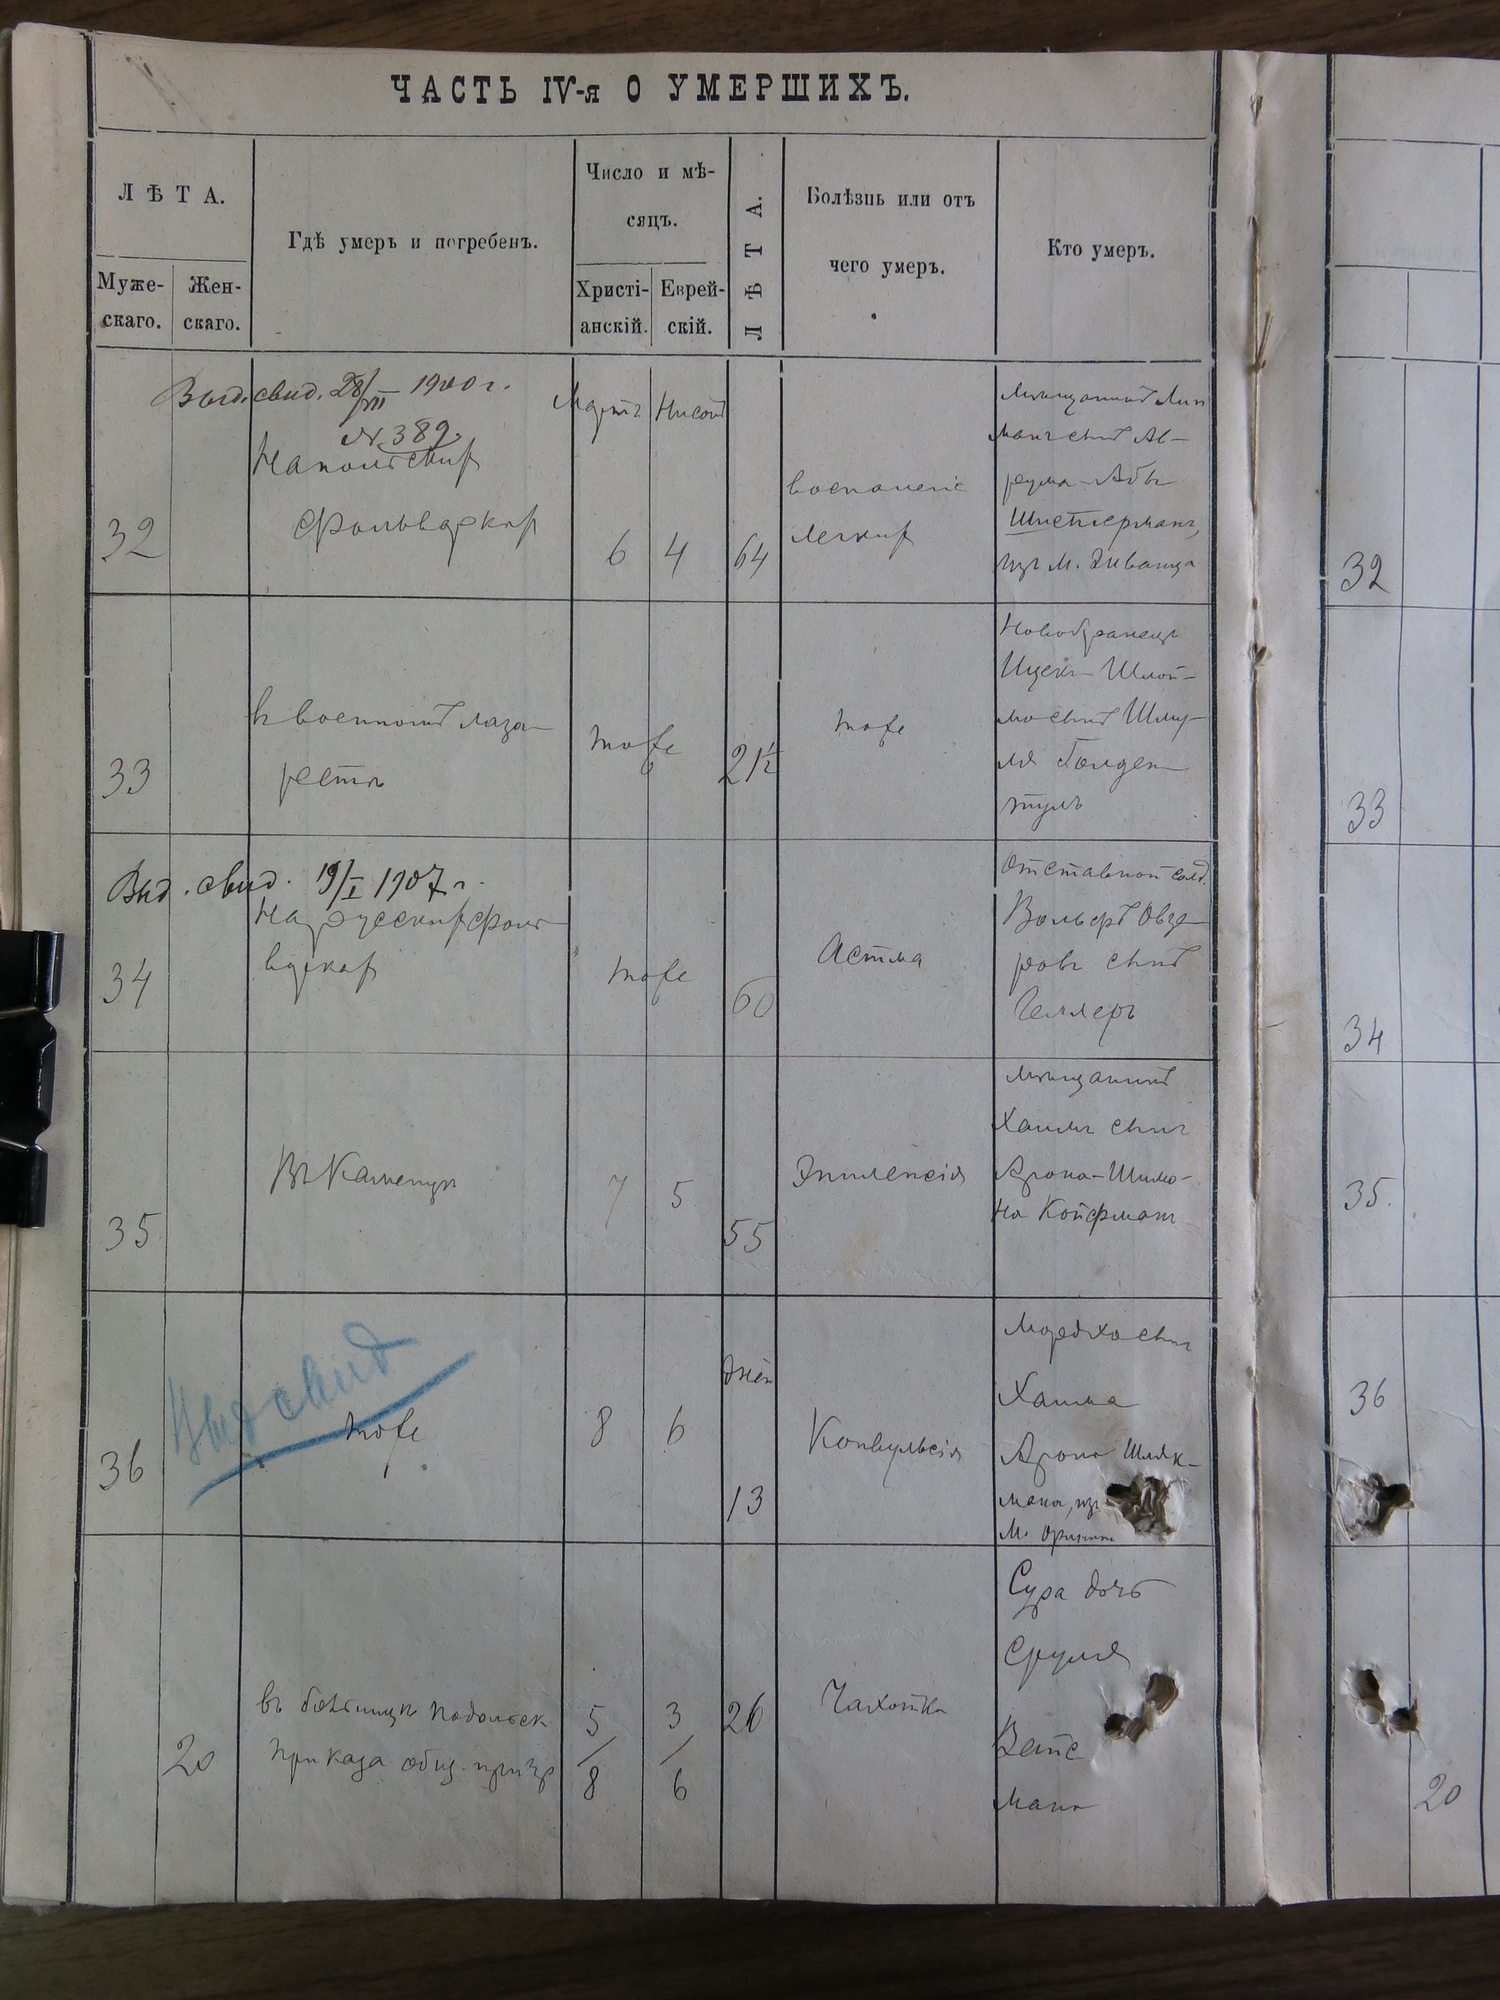 ЧАСТЬ IV-я О УМЕРШИХЪ.
ЛѢТА.
Муже-
скаго.
Жен-
скаго.
Гдѣ умеръ и погребенъ.
Число и мѣ-
сяцъ.
Христі-
анскій.
Еврей-
скій.
ЛѢТА.
Болѣзнь или отъ
чего умеръ.
Кто умеръ.
Выд. свид. 28/VII 1900 г.
№ 389.
32
На польских
фольварках
Мартъ
6
Нисонъ
4
64
воспаленіе
легких
Мѣщанинъ Лип
манъ сынъ Ав-
рума-Абы
Шпетлерманъ,
изъ м.
32
33
въ военномъ лаза-
ретѣ
тоже
21½
тоже
Новобранецъ
Ицекъ-Шлой-
мо сынъ Шму-
ля Голден
тулъ
33
Выд. свид. 19/I 1907 г.
34
На русских фоль-
варках
тоже
60
Астма
Отставной солд.
Вольфъ Овзе-
ровъ сынъ
Геллеръ
34
35
Въ Каменцѣ
7
5
55
Эпилепсія
Мѣщанинъ
Хаимъ сынъ
Арона-Шимо-
на Койфманъ
35.
Выд свид
36
тоже
8
6
дней
13
Конвульсія
Мордхо сынъ
Хаима
Арона Шляк-
мана, изъ
м. Оринин
36
20
въ больницѣ Подольск
Приказа общ. призр
5/8
3/6
26
Чахотка
Сура дочь
Сруля
Вайс
манъ
20